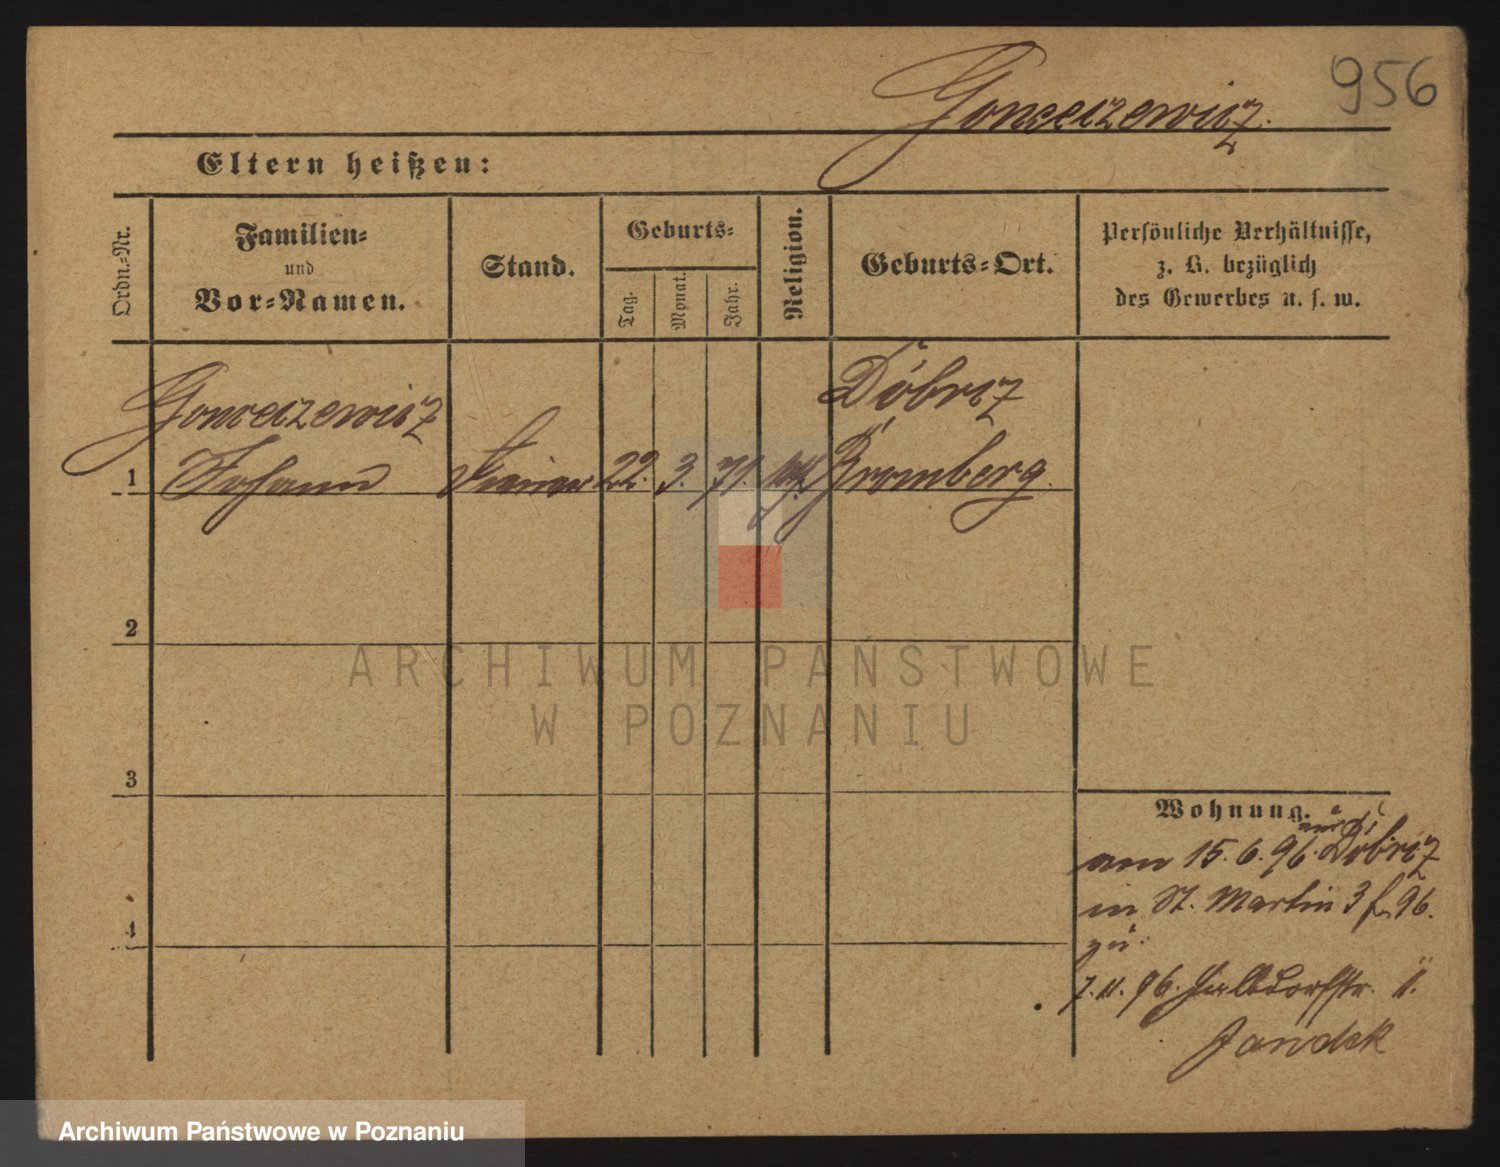 956
Gonseczewicz.
Eltern heißen:
Ordn.-Nr.
Familien-
und
Vor-Namen.
Stand.
Geburts-
Tag.
Monat.
Jahr.
Religion.
Geburts-Ort.
Persönliche Verhältnisse,
z. B. bezüglich
des Gewerbes u. s. w.
Döbritz
1 Johann 22. 3. 71. Bromberg.
2
3
4
Wohnung.
am 15.6.96. Döbritz
in St. Martin 3 96.
zu
7.11.96. Halbdorfstr. 11.
Jandek
ARCHIWUM PAŃSTWOWE
W POZNANIU
Archiwum Państwowe w Poznaniu